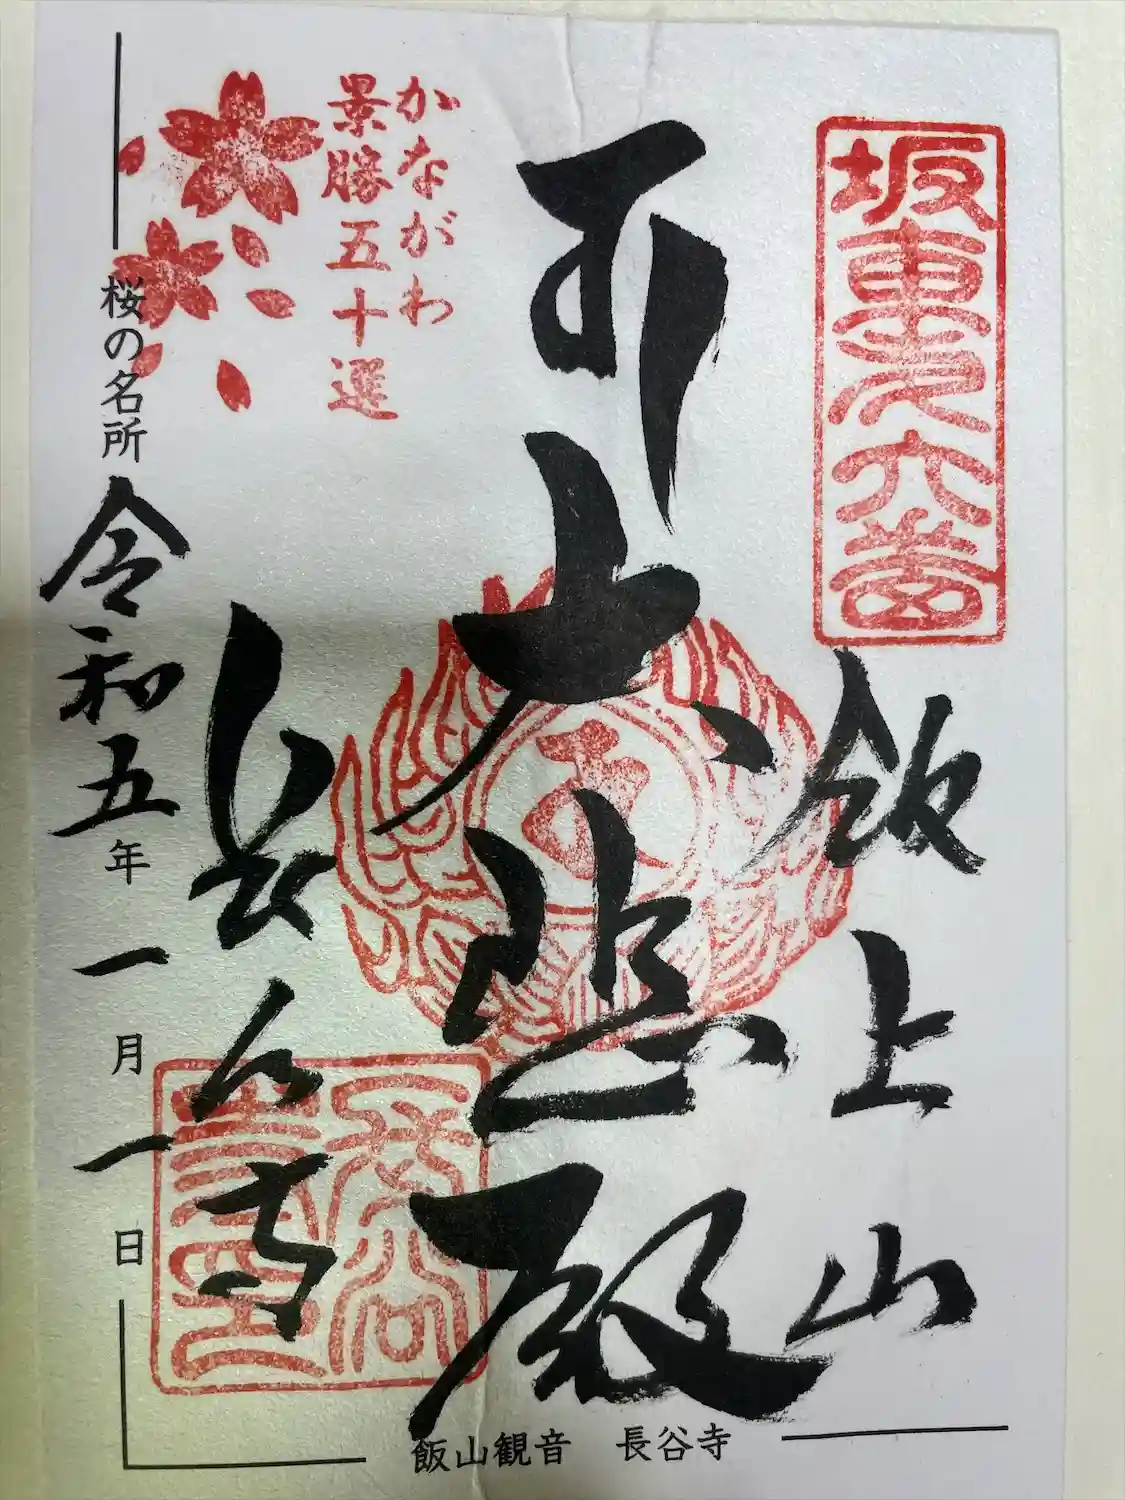 坂東第六番
飯上山
大悲殿
かながわ
景勝五十選
長谷寺
桜の名所
令和五年一月一日
飯山観音 長谷寺